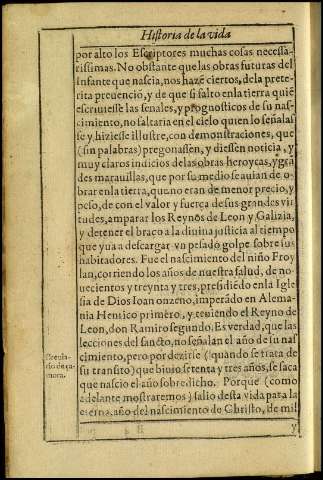 Historia de la vida
por alto los Escriptores muchas cosas necessa-
rissimas. No obstante que las obras futuras del
Infante que nascia, nos hazē ciertos, de la prete-
rita preuenció, y de que si falto en la tierra quiē
escriuiesse las señales, y prognosticos de su nas-
cimiento, no faltaria en el cielo quien lo señalas
se y hiziesse illustre, con demonstraciones, que
(sin palabras) pregonassen, y diessen noticia, y
muy claros indicios de las obras heroycas, y grā
des marauillas, que por su medio se auian de o-
brar en la tierra, que no eran de menor precio, y
peso, de con el valor y fuerça de sus grandes vir
tudes, amparar los Reynos de Leon y Galizia,
y detener el braco a la diuina justicia al tiempo
que yua a descargar vn pesado golpe sobre sus
habitadores. Fue el nascimiento del niño Froy
lan, corriendo los años de nuestra salud, de no-
uecientos y treynta y tres, presidiēdo en la Igle
sia de Dios Ioan onzeno, imperādo en Alema-
nia Henrico primero, y teniendo el Reyno de
Leon, don Ramiro segundo. Es verdad, que las
lecciones del sancto, no señalan el año de su nas
cimiento, pero por dezirse (quando se trata de
su transito) que biuio setenta y tres años, se saca
que nascio el año sobredicho. Porque (como
adelante mostraremos) salio desta vida para la
eterna, año del nascimiento de Christo, de mil
y
Breuia-
rio de ça-
mora.